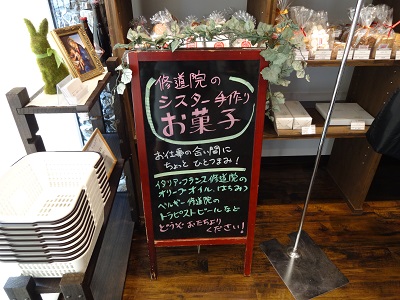 修道院の
シスター手作り
お菓子
お仕事の合い間に
ちょっとひとつまみ!
イタリア・フランス修道院の
オリーブオイル、はちみつ
ベルギー修道院の
トラピストビールなど
どうぞおたちより
ください!